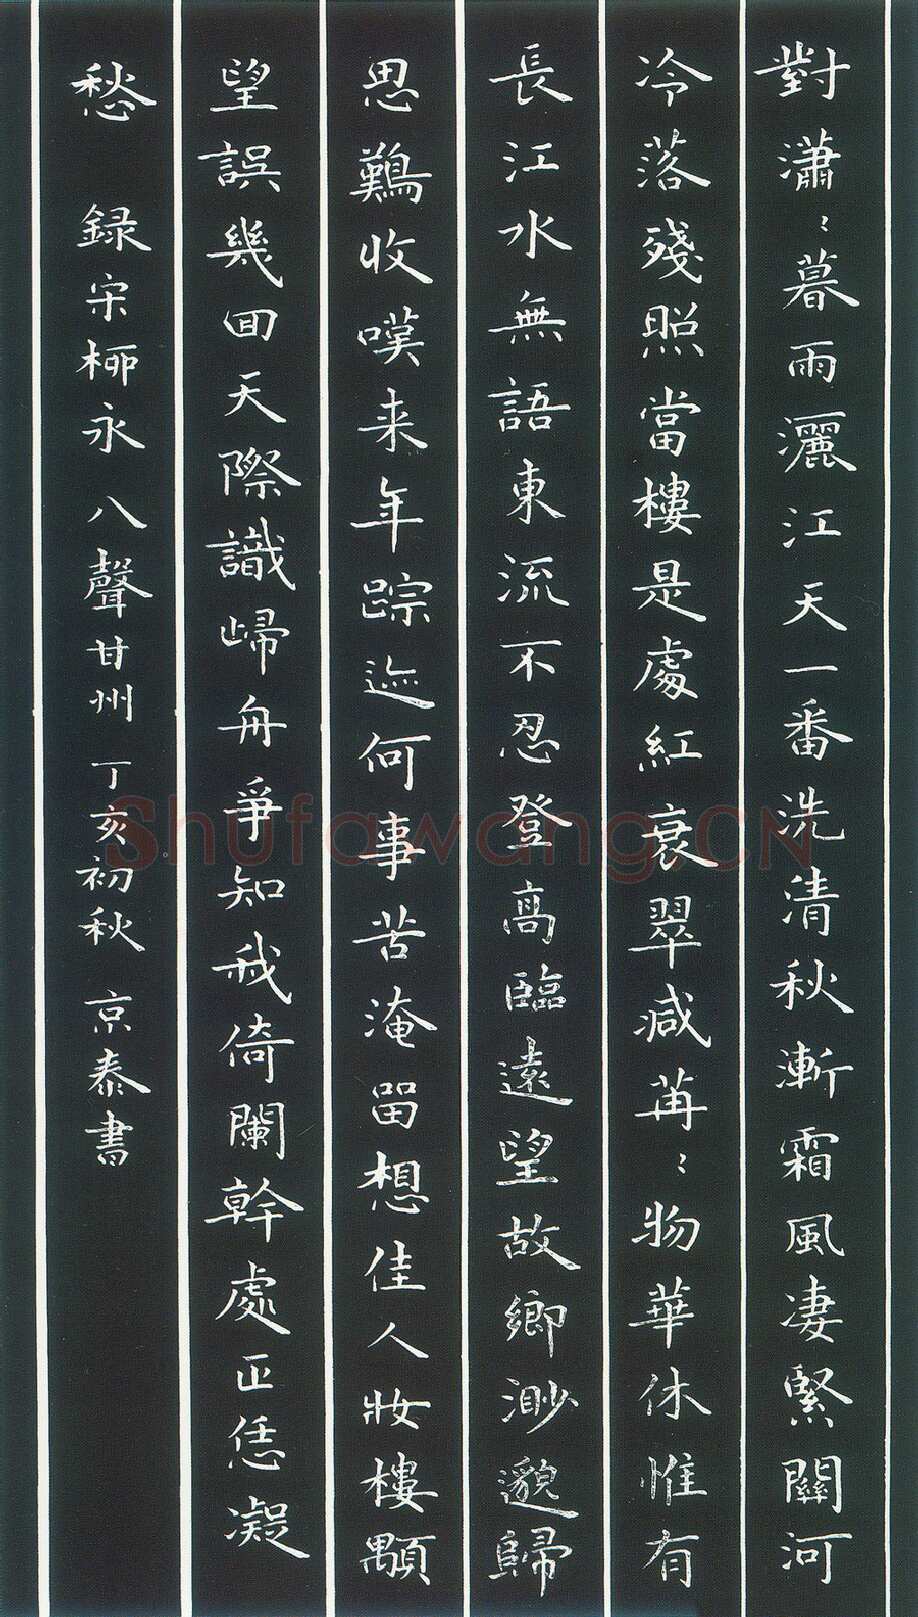 對瀟〻暮雨灑江天一番洗清秋漸霜風淒緊關河
冷落殘照當樓是處紅衰翠减苒〻物華休惟有
長江水無語東流不忍登高臨遠望故鄉渺邈歸
思難收嘆来年踪迹何事苦淹留想佳人妝樓顒
望誤幾回天際識歸舟爭知我倚闌幹處正恁凝
愁 録宋柳永八聲甘州丁亥初秋京泰書
Shufawang.CN